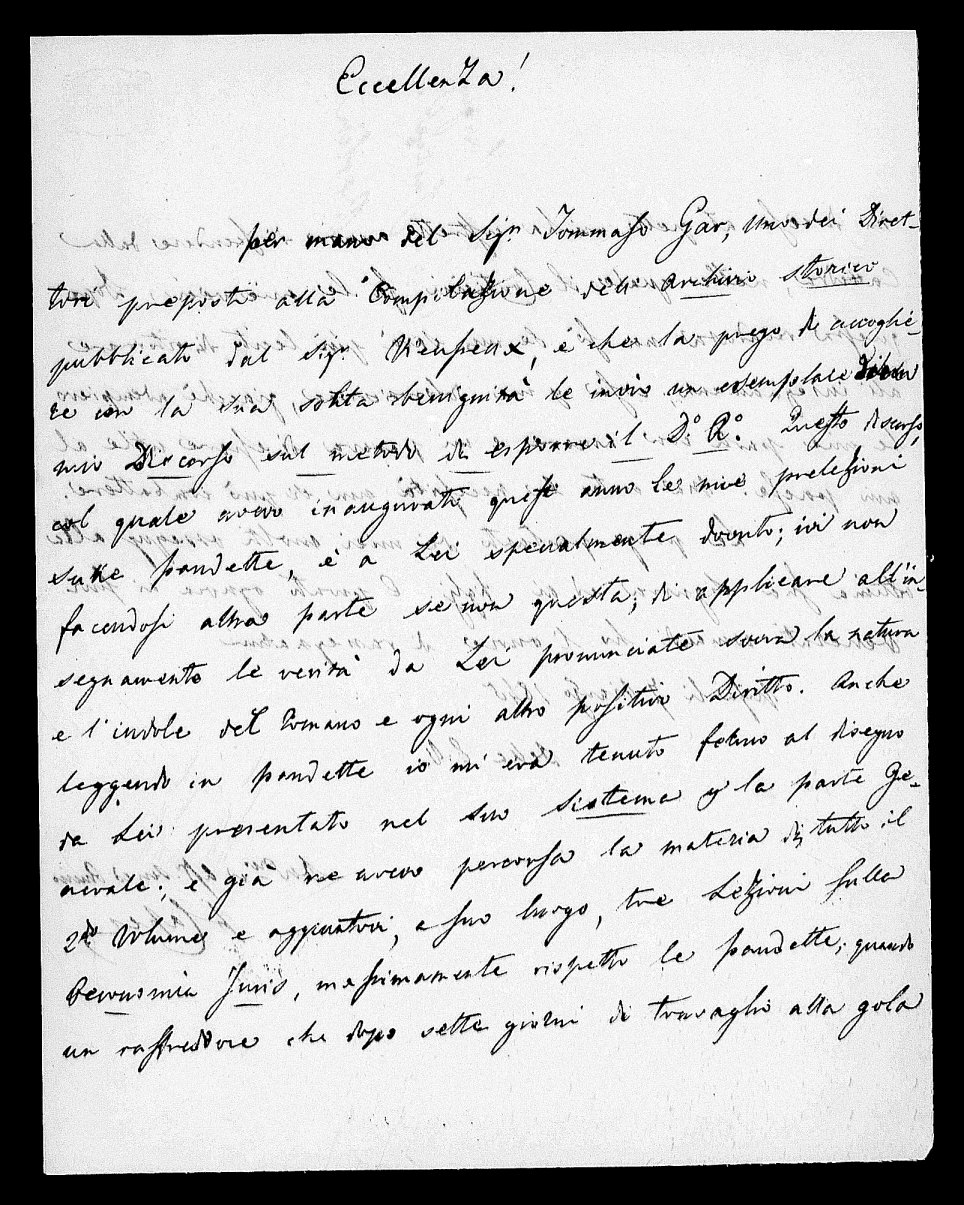 Eccellenza!
per mano del Sigr. Tommaso Gar, uno dei Diret-
tori preposti alla Compilazione dell'Archivio storico
pubblicato dal Sigr. Vieusseux, e che la prego di accoglie-
re con la sua solita benignità le invio un esemplare del
mio Discorso sul metodo di esporre il D.º R.º Questo discorso,
col quale avevo inaugurato quest'anno le mie prelezioni
sulle pandette, è a Lei specialmente dovuto; ivi non
facendosi altra parte se non questa; di applicare all'in-
segnamento le verità da Lei pronunciate sovra la natura
e l'indole del Romano e ogni altro positivo Diritto. Anche
leggendo in pandette io mi era tenuto fermo al disegno
da Lei presentato nel suo Sistema p la parte Ge-
nerale; e già ne avevo percorsa la materia di tutto il
2do Volume e aggiuntovi, a suo luogo, tre Lezioni sulla
Juris, massimamente rispetto le pandette; quando
un raffreddore che dopo sette giorni di travaglio alla gola